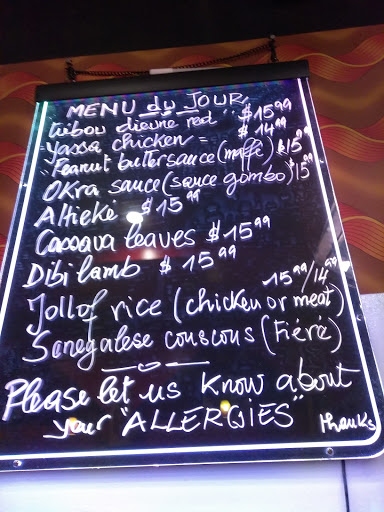 MENU du JOUR
Tiebou dieune red $15.99
yassa chicken = $14.99
Peanut butter sauce (maffe) $15.99
OKra sauce (sauce gombo) $15.99
Attieke $15.99
Cassava leaves $15.99
Dibi lamb $15.99
15.99/14.99
Jollof rice (chicken or meat)
Senegalese couscous (Tiéré)
Please let us know about
your "ALLERGIES" thanks